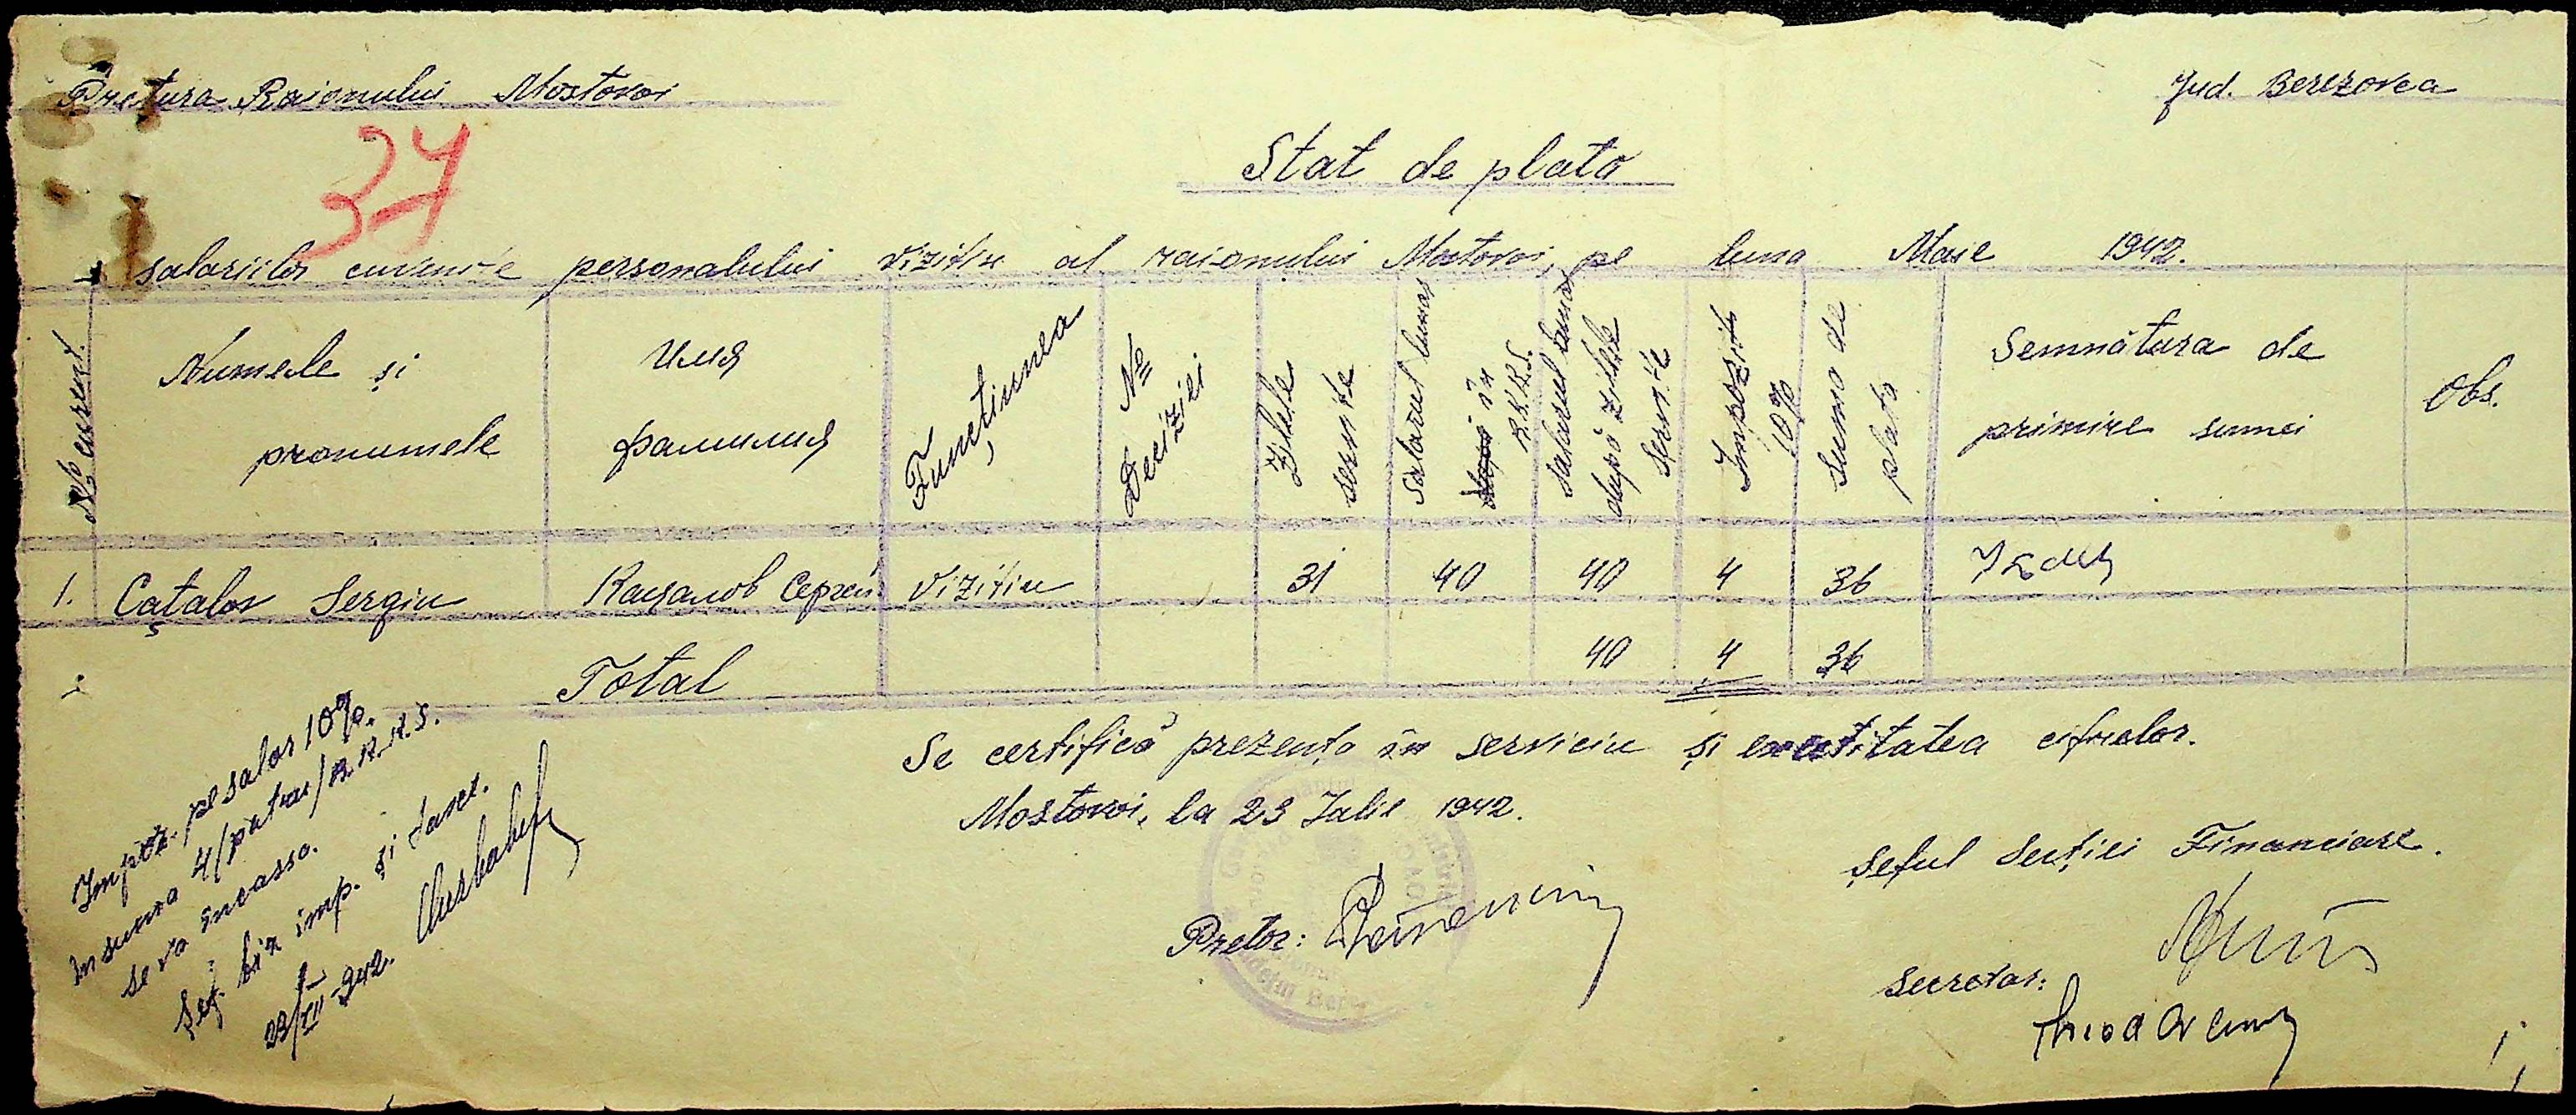 Pretura Raionului Mostovoi
Jud. Berezovca
37
Stat de plata
salariilor cuvenite personalului vizitiu al raionului Mostovoi, pe luna Maie 1942.
№ curent.
Numele și pronumele
Имя фамилия
Funcțiunea
№ Deciziei
Zilele servite
Salariul lunar în R.K.K.S.
Salariul lunar după zilele servite
Impozit 10%
Suma de plată
Semnătura de primire sumei
Obs.
1. Cațalov Sergiu Кацалов Сергей Vizitiu 31 40 40 4 36
Total 40 4 36
Impoz. pe salar 10%.
în suma 4/patru/R.K.K.S.
se va încassa.
Șef. bir imp. și
23/VII-942.
Se certifică prezența în serviciu și exactitatea cifrelor.
Mostovoi, la 23 Iulie 1942.
Pretor:
Șeful Secției Financiare.
Secretar: